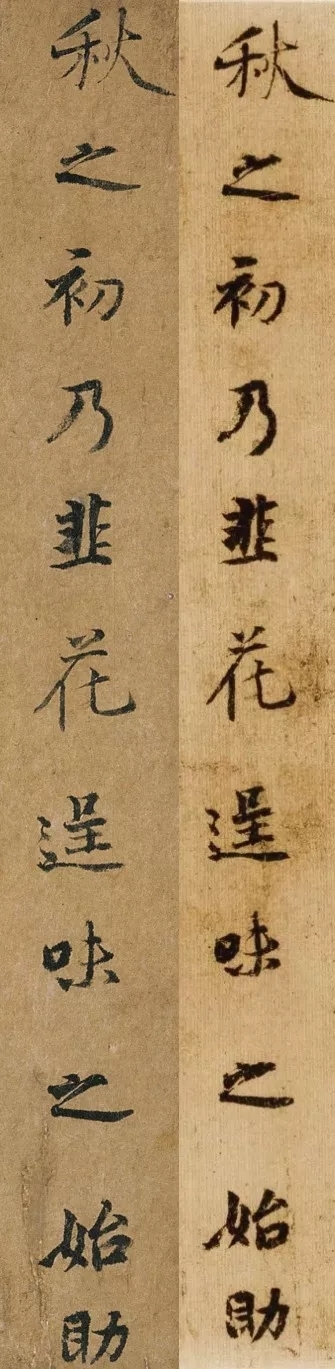 秋之初乃韭花逞味之始助
秋之初乃韭花逞味之始助